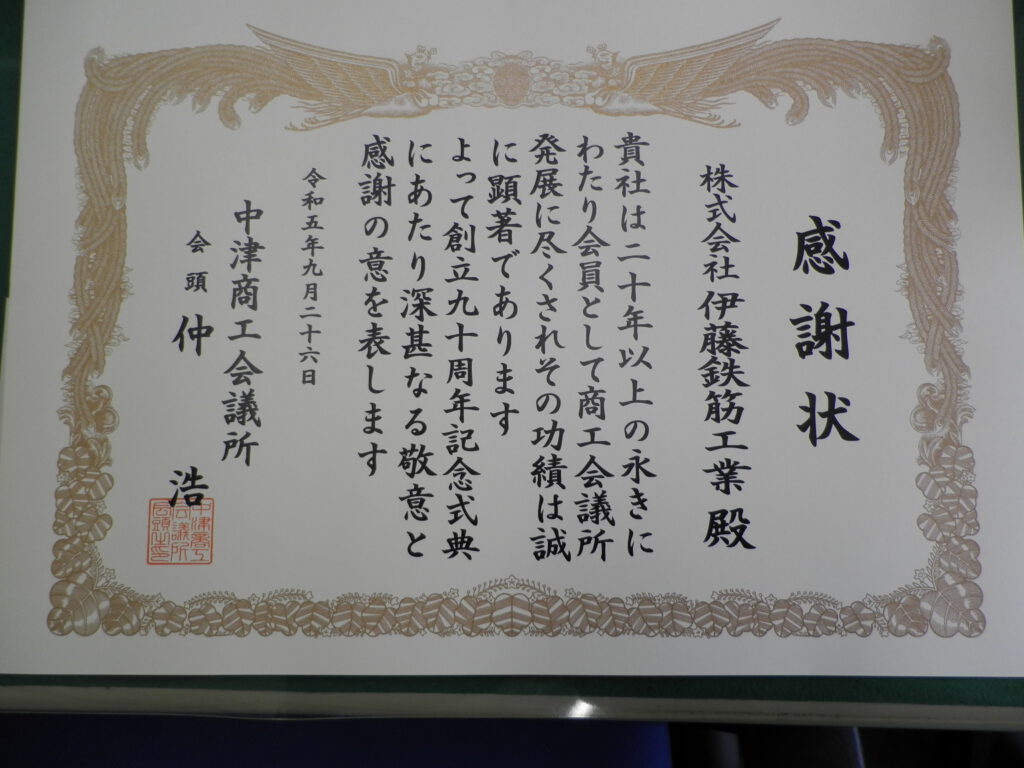 感謝状
株式会社 伊藤鉄筋工業 殿
貴社は二十年以上の永きに
わたり会員として商工会議所
発展に尽くされその功績は誠
に顕著であります
よって創立九十周年記念式典
にあたり深甚なる敬意と
感謝の意を表します
令和五年九月二十六日
中津商工会議所
会頭 仲 浩
中津商工
会議所
会頭之印